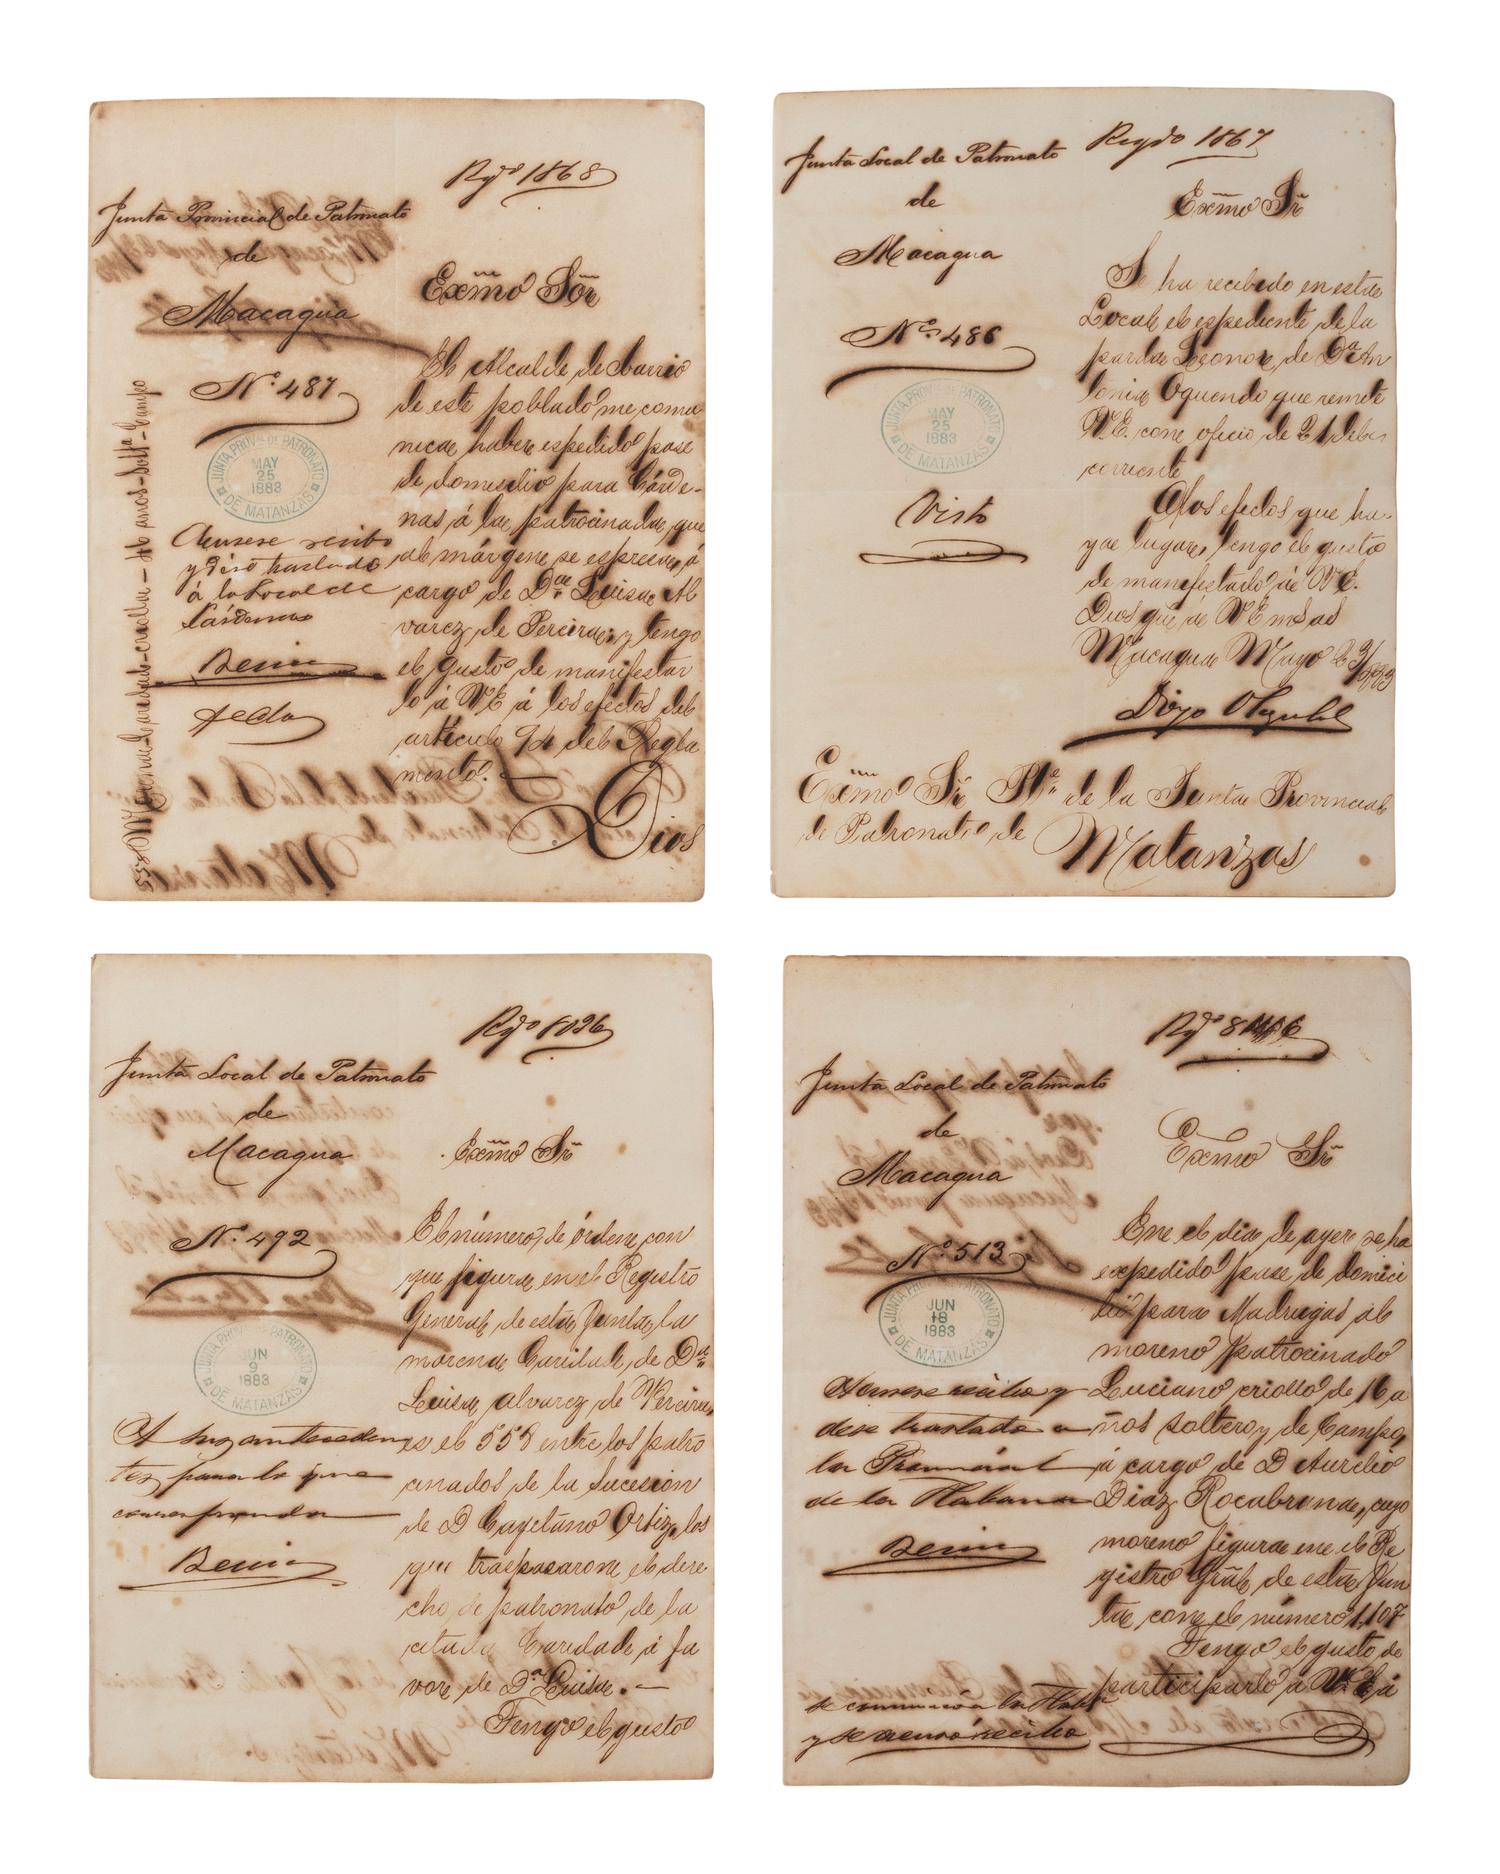 Rgdo 1868
Junta Provincial de Patronato
de
Macagua
Exmo Sor
Nº 487
JUNTA PROVAL DE PATRONATO
MAY
25
1883
DE MATANZAS
El Alcalde de barrio
de este poblado me comu
nica haber espedido pase
de domicilio para Cárde-
nas, á la patrocinada, que
al márgen se espresa, á
cargo de Da Luisa Al
varez de Pereira; y tengo
el gusto de manifestar
lo á V.E. á los efectos del
artículo 94 del Regla
mento.
Dios
Acusese recibo
y dese traslado
á la Local de
Cárdenas
Benin
fecho
558 Morena Caridad-criolla-46 años-Solta-Campo
Regdo 1867
Junta Local de Patronato
de
Macagua
Exmo Sr
Nº 486
JUNTA PROVAL DE PATRONATO
MAY
25
1883
DE MATANZAS
Visto
Se ha recibido en esta
Local el espediente de la
parda Leonor de Da An
tonia Oquendo que remite
V.E. con oficio de 21 del
corriente
A los efectos que ha-
ya lugar, tengo el gusto
de manifestarlo á V.E.
Dios gue á V.E. ms as
Macagua Mayo 23/883
Diego
Exmo Sr Pte de la Junta Provincial
de Patronato de
Matanzas
Rgdo 8026
Junta Local de Patronato
de
Macagua
Exmo Sr
Nº 492
JUNTA PROVAL DE PATRONATO
JUN
9
1883
DE MATANZAS
El número, de órden, con
que figura en el Registro
General de esta Junta, la
morena Caridad, de Da
Luisa Alvarez de Pereira,
es el 558 entre los patro
cinados de la sucesion
de D Cayetano Ortiz, los
que traspasaron el dere
cho de patronato de la
citada Caridad á fa
vor de Da Luisa.
Tengo el gusto
A sus anteceden
tes para lo que
corresponda
Benin
Rgdo 8
Junta Local de Patronato
de
Macagua
Exmo Sr
Nº 513
JUNTA PROVAL DE PATRONATO
JUN
18
1883
DE MATANZAS
En el dia de ayer se ha
expedido pase de domici
lio para Madrugas al
moreno patrocinado
Luciano criollo de 16 a
ños soltero y de Campo,
á cargo de D Aurelio
Diaz Rocabruna, cuyo
moreno figura en el Re
gistro Gral de esta Jun
ta con el número 1,107
Tengo el gusto de
participarlo á V.E. á
Acusese recibo y
dese traslado a
la Provincial
de la Habana
Benin
se comunicó la Haba
y se acusó recibo